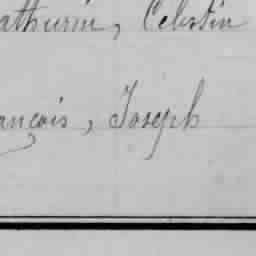 athurin, Celestin
ançois, Joseph